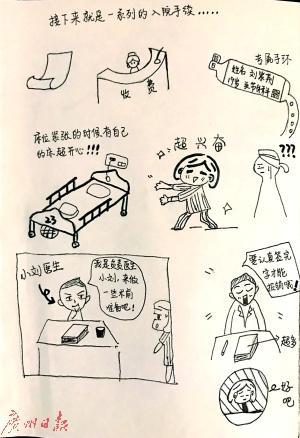 接下来就是一系列的入院手续.....
收费
专属手环
姓名 刘紫荆
关节外科
床位紧张的时候有自己
的床超开心!!!
23
超兴奋
???
小刘医生
我是负责医生
小刘，来做
一些术前
准备吧！
要认真签完
字才能
放领哦！
超多
好
吧
广州日报